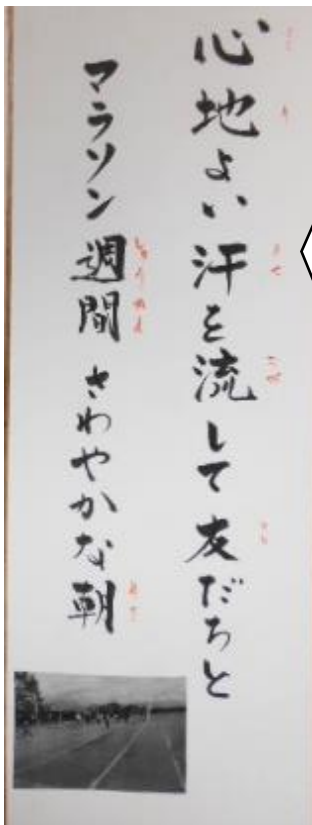 心地よい汗を流して友だちと
マラソン週間さわやかな朝